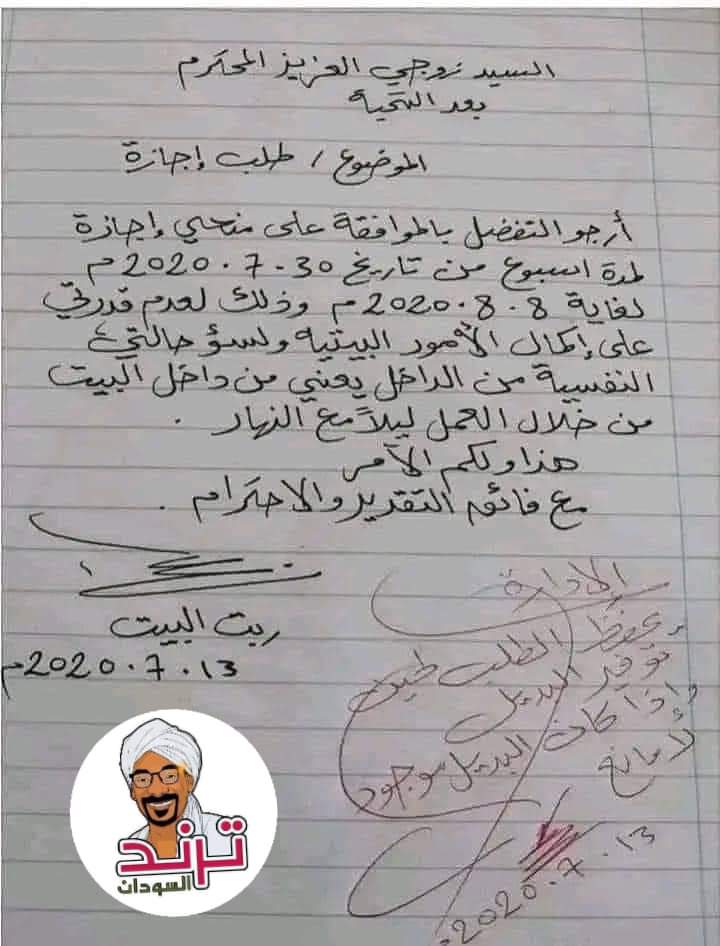 السيد زوجي العزيز المحترم
بعد التحية
الموضوع / طلب إجازة
أرجو التفضل بالموافقة على منحي إجازة
لمدة اسبوع من تاريخ 30-7.2020م
لغاية 8.8.2020م وذلك لعدم قدرتي
على إكمال الأمور البيتيه ولسؤ حالتي
النفسية من الداخل يعني من داخل البيت
من خلال العمل ليلاً مع النهار .
هذا ولكم الأمر
مع فائق التقدير والاحترام .
ربت البيت
13.7.2020م
الإدارة
يحفظ الطلب لحين
توفير البديل
وإذا كان البديل موجود
لا مانع
13.7.2020م
ترند
السودان